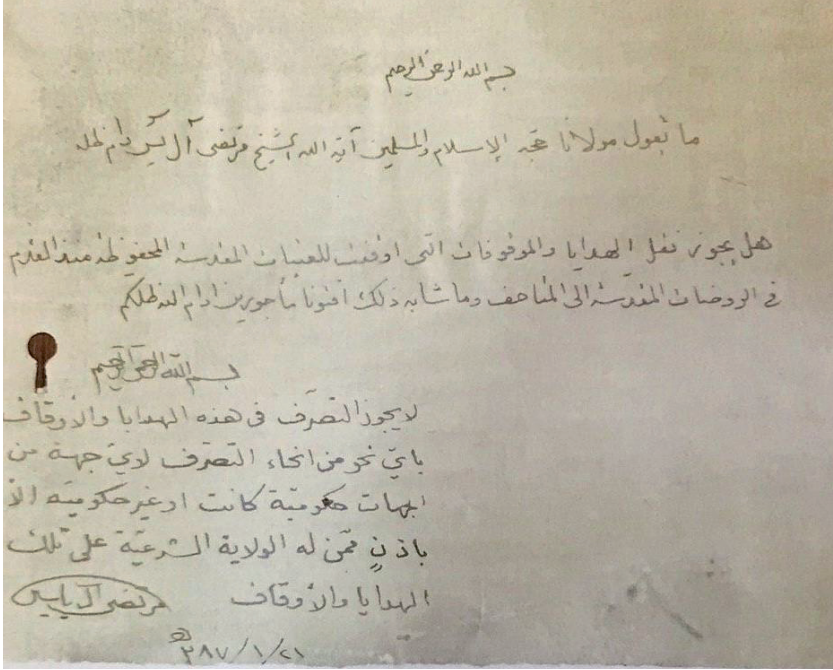 بسم الله الرحمن الرحيم
ما تقول مولانا حجة الإسلام والمسلمين آية الله الشيخ مرتضى آل يٰس دام ظله
هل يجوز نقل الهدايا والموقوفات التي اوقفت للعتبات المقدسة المحفوظة منذ القدم
في الروضات المقدسة الى المتاحف وما شابه ذلك افتونا مأجورين ادام الله ظلكم
بسم الله الرحمن الرحيم
لا يجوز التصرّف في هذه الهدايا والأوقاف
بايّ نحو من انحاء التصرّف لايّ جهة من
الجهات حكوميّة كانت او غير حكوميّة الّا
باذنٍ ممّن له الولاية الشرعيّة على تلك
الهدايا والأوقاف
مرتضى آل ياسين
٣٨٧/١/٢١ هـ